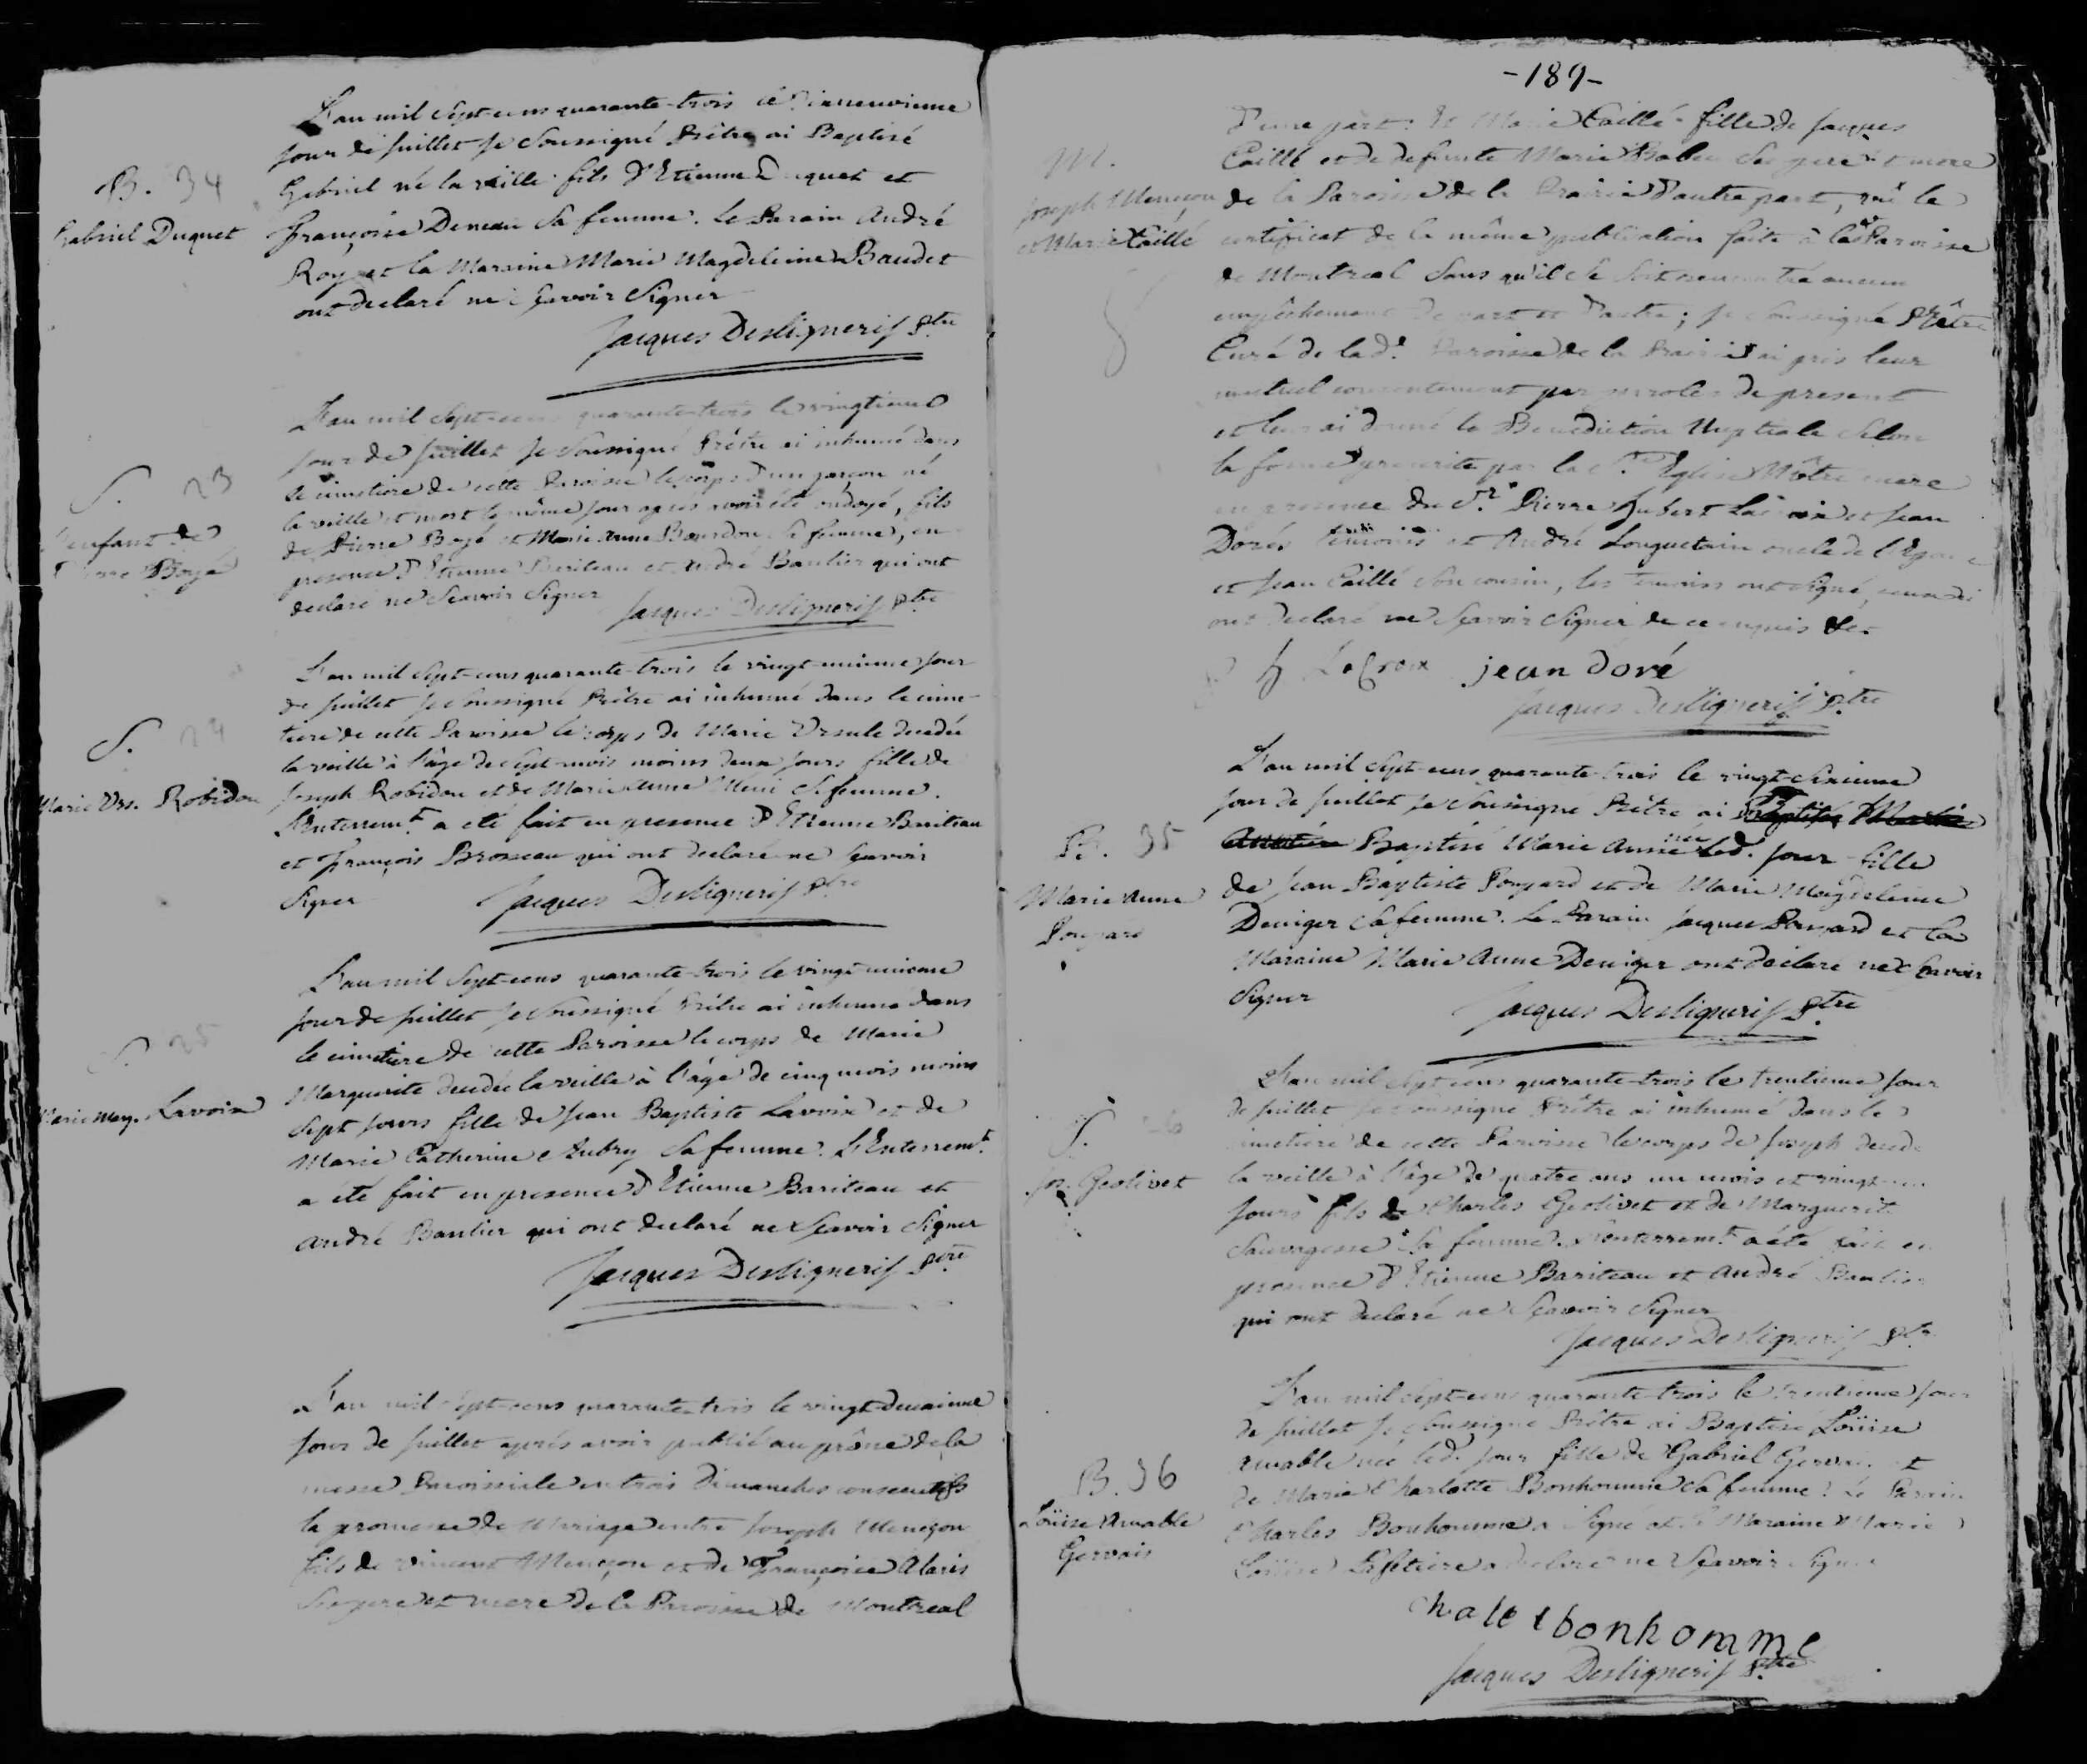 B. 34
Gabriel Duquet
L'an mil sept-cens quarante-trois le dixneuvieme
jour de juillet je soussigné Prêtre ai Baptisé
Gabriel né la veille fils d'Etienne Duquet et
Françoise Deneau sa femme. Le Parain André
Roy et la Maraine Marie Magdeleine Baudet
ont declaré ne sçavoir signer
Jacques Desligneris ptre
S. 23
L'enfant de
Pierre Boyé
L'an mil sept-cens quarante-trois le vingtieme
jour de juillet je soussigné Prêtre ai inhumé dans
le cimetiere de cette Paroisse le corps d'un garçon né
la veille et mort le même jour après avoir été ondoyé, fils
de Pierre Boyé et Marie Anne Bourdon sa femme, en
presence d'Etienne Bariteau et André Bantier qui ont
declaré ne sçavoir signer
Jacques Desligneris ptre
S. 24
Marie Urs. Robidou
L'an mil sept-cens quarante-trois le vingt-unieme jour
de juillet je soussigné Prêtre ai inhumé dans le cime-
tiere de cette Paroisse le corps de Marie Ursule decedée
la veille à l'âge de sept mois moins deux jours fille de
Joseph Robidou et de Marie Anne sa femme.
L'Enterremt. a été fait en presence d'Etienne Bariteau
et François Brosseau qui ont declaré ne sçavoir
signer
Jacques Desligneris ptre
S. 25
Marie Marg. Lavoix
L'an mil sept-cens quarante-trois le vingt-unieme
jour de juillet je soussigné Prêtre ai inhumé dans
le cimetiere de cette Paroisse le corps de Marie
Marguerite decedée la veille à l'âge de cinq mois moins
sept jours fille de Jean Baptiste Lavoix et de
Marie Catherine Aubry sa femme. L'Enterremt.
a été fait en presence d'Etienne Bariteau et
André Bantier qui ont declaré ne sçavoir signer
Jacques Desligneris ptre
L'an mil sept-cens quarante-trois le vingt-deuxieme
jour de juillet après avoir publié au prône de la
messe Paroissiale en trois Dimanches consecutifs
la promesse de Mariage entre Joseph Mençon
fils de Vincent Mençon et de Françoise Alaris
ses pere et mere de la Paroisse de Montreal
-189-
M.
Joseph Mençon
et Marie Caillé
d'une part: Et Marie Caillé fille de Jacques
Caillé et de defunte Marie ses pere et mere
de la Paroisse de la Prairie d'autre part, vû le
certificat de la même publication faite à la Paroisse
de Montreal sans qu'il se soit rencontré aucun
empêchement de part et d'autre; je soussigné Prêtre
Curé de lad. Paroisse de la Prairie ai pris leur
mutuel consentement par paroles de present
et leur ai donné la Benediction Nuptiale selon
la forme prescrite par la Ste. Eglise Nôtre mere
en presence du Sr. Pierre Hubert Lacroix et Jean
Doré temoins et André Longuetain oncle de l'Epouse
et Jean Caillé son cousin, les temoins ont signé,
ont declaré ne sçavoir signer de ce enquis
h Lacroix jean doré
Jacques Desligneris ptre
B. 35
Marie Anne
Poupard
L'an mil sept-cens quarante-trois le vingt-sixieme
jour de juillet je soussigné Prêtre ai
Baptisé Marie Anne née led. jour fille
de Jean Baptiste Poupard et de Marie Magdeleine
Deniger sa femme. Le Parain Jacques Poupard et la
Maraine Marie Anne Deniger ont declaré ne sçavoir
signer
Jacques Desligneris ptre
S. 26
Jos. Geolivet
L'an mil sept-cens quarante-trois le trentieme jour
de juillet je soussigné Prêtre ai inhumé dans le
cimetiere de cette Paroisse le corps de Joseph decedé
la veille à l'âge de quatre ans un mois et vingt-
jours fils de Charles Geolivet et de Marguerite
Sauvagesse sa femme. L'enterremt. a été fait en
presence d'Etienne Bariteau et André Bantier
qui ont declaré ne sçavoir signer
Jacques Desligneris ptre
B. 36
Loüise Amable
Gervais
L'an mil sept-cens quarante-trois le trentieme jour
de juillet je soussigné Prêtre ai Baptisé Loüise
Amable née led. jour fille de Gabriel Gervais et
de Marie Charlotte Bonhomme sa femme. Le Parain
Charles Bonhomme a signé et la Maraine Marie
Loüise a declaré ne sçavoir signer
chalebonhomme
Jacques Desligneris ptre